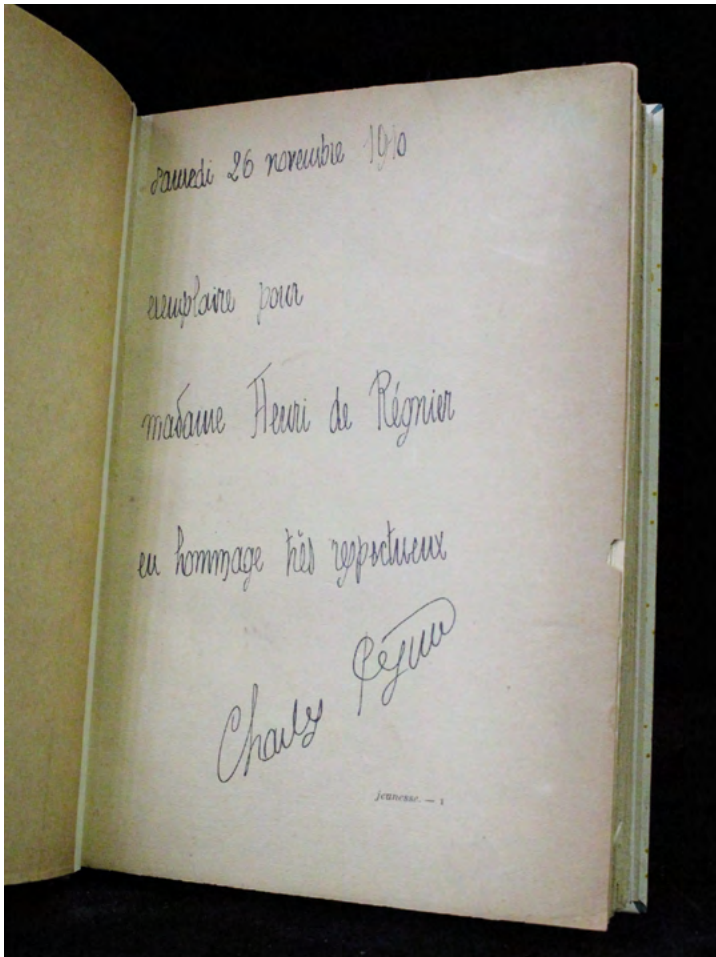 samedi 26 novembre 1910
exemplaire pour
madame Henri de Régnier
en hommage très respectueux
Charles Péguy
jeunesse. — 1